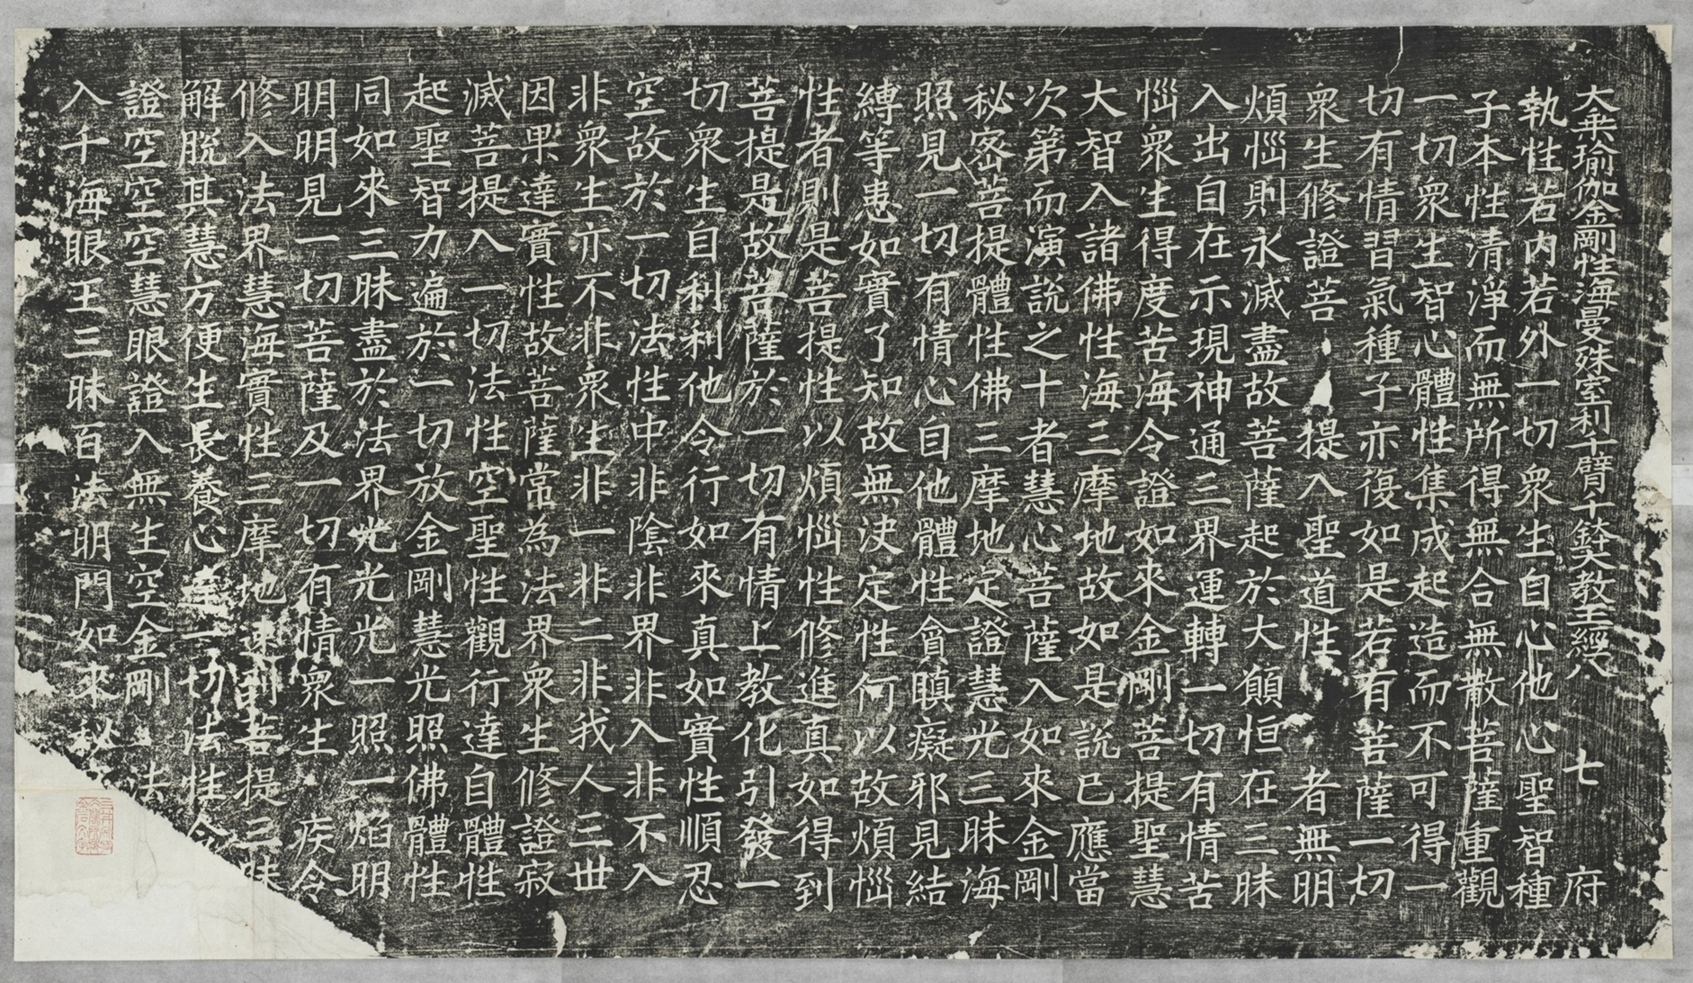 大乗瑜伽金剛性海曼殊室利千臂千鉢大教王經八 七 府
執性若内若外一切衆生自心他心聖智種
子本性清淨而無所得無合無散菩薩重觀
一切衆生智心體性集成起造而不可得一
切有情習氣種子亦復如是若有菩薩一切
衆生修證菩提入聖道性者無明
煩惱則永滅盡故菩薩起於大願恒在三昧
入出自在示現神通三界運轉一切有情苦
惱衆生得度苦海令證如來金剛菩提聖慧
大智入諸佛性海三摩地故如是説已應當
次第而演説之十者慧心菩薩入如來金剛
秘密菩提體性佛三摩地定證慧光三昧海
照見一切有情心自他體性貪瞋癡邪見結
縛等患如實了知故無決定性何以故煩惱
性者則是菩提性以煩惱性修進真如得到
菩提是故菩薩於一切有情上教化引發一
切衆生自利利他令行如來真如實性順忍
空故於一切法性中非陰非界非入非不入
非衆生亦不非衆生非一非二非我人三世
因果達實性故菩薩常為法界衆生修證寂
滅菩提入一切法性空聖性觀行達自體性
起聖智力遍於一切放金剛慧光照佛體性
同如來三昧盡於法界光光光一照一焰明
明明見一切菩薩及一切有情衆生疾令
修入法界慧海實性三摩地速到菩提三昧
解脱其慧方便生長養心一切法性令
證空空空慧眼證入無生空金剛三法
入千海眼王三昧百法明門如來秘